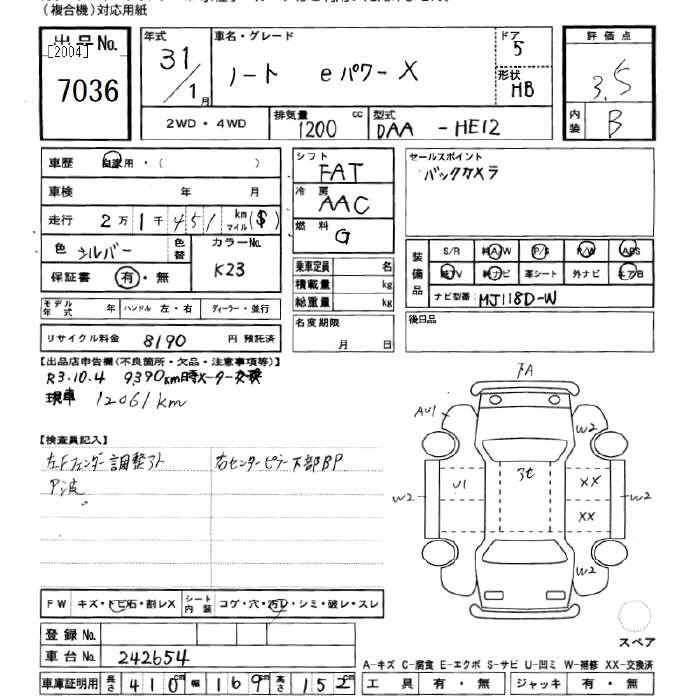 (複合機)対応用紙
出品No.
[2004]
7036
年式 31/1月
車名・グレード ノート eパワーX
ドア 5
形状 HB
評価点 3.5
内装 B
2WD・4WD
排気量 1200 cc
型式 DAA-HE12
車歴 自家用・( )
車検 年 月
走行 2万1千451 km マイル ($)
色 シルバー 色替
カラーNo. K23
保証書 有・無
モデル年式 年 ハンドル 左・右 ディーラー・並行
リサイクル料金 8190 円 預託済
シフト FAT
冷房 AAC
燃料 G
乗車定員 名
積載量 kg
総重量 kg
名変期限 月 日
セールスポイント
バックカメラ
装備品 S/R 純A/W P/S P/W ABS
純TV 純ナビ 革シート 外ナビ エアB
ナビ型番: MJ118D-W
後日品
【出品店申告欄(不良箇所・欠品・注意事項等)】
R3.10.4 9390km時メーター交換
現車 12061km
【検査員記入】
左Fフェンダー調整アト 右センターピラー下部BP
ア波
下A
AU1
W2
W2
U1
アセ
XX
XX
W2
W2
FW キズ・トビ石・割レX シート内装 コゲ・穴・汚レ・シミ・破レ・スレ
登録No.
車台No. 242654
スペア
A-キズ C-腐食 E-エクボ S-サビ U-凹ミ W-補修 XX-交換済
車庫証明用 長さ 410cm 幅 169cm 高さ 152cm
工具 有・無 ジャッキ 有・無